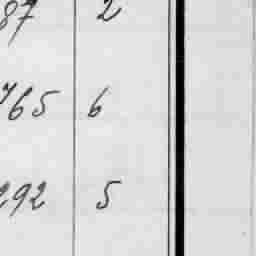 87 2
765 6
292 5